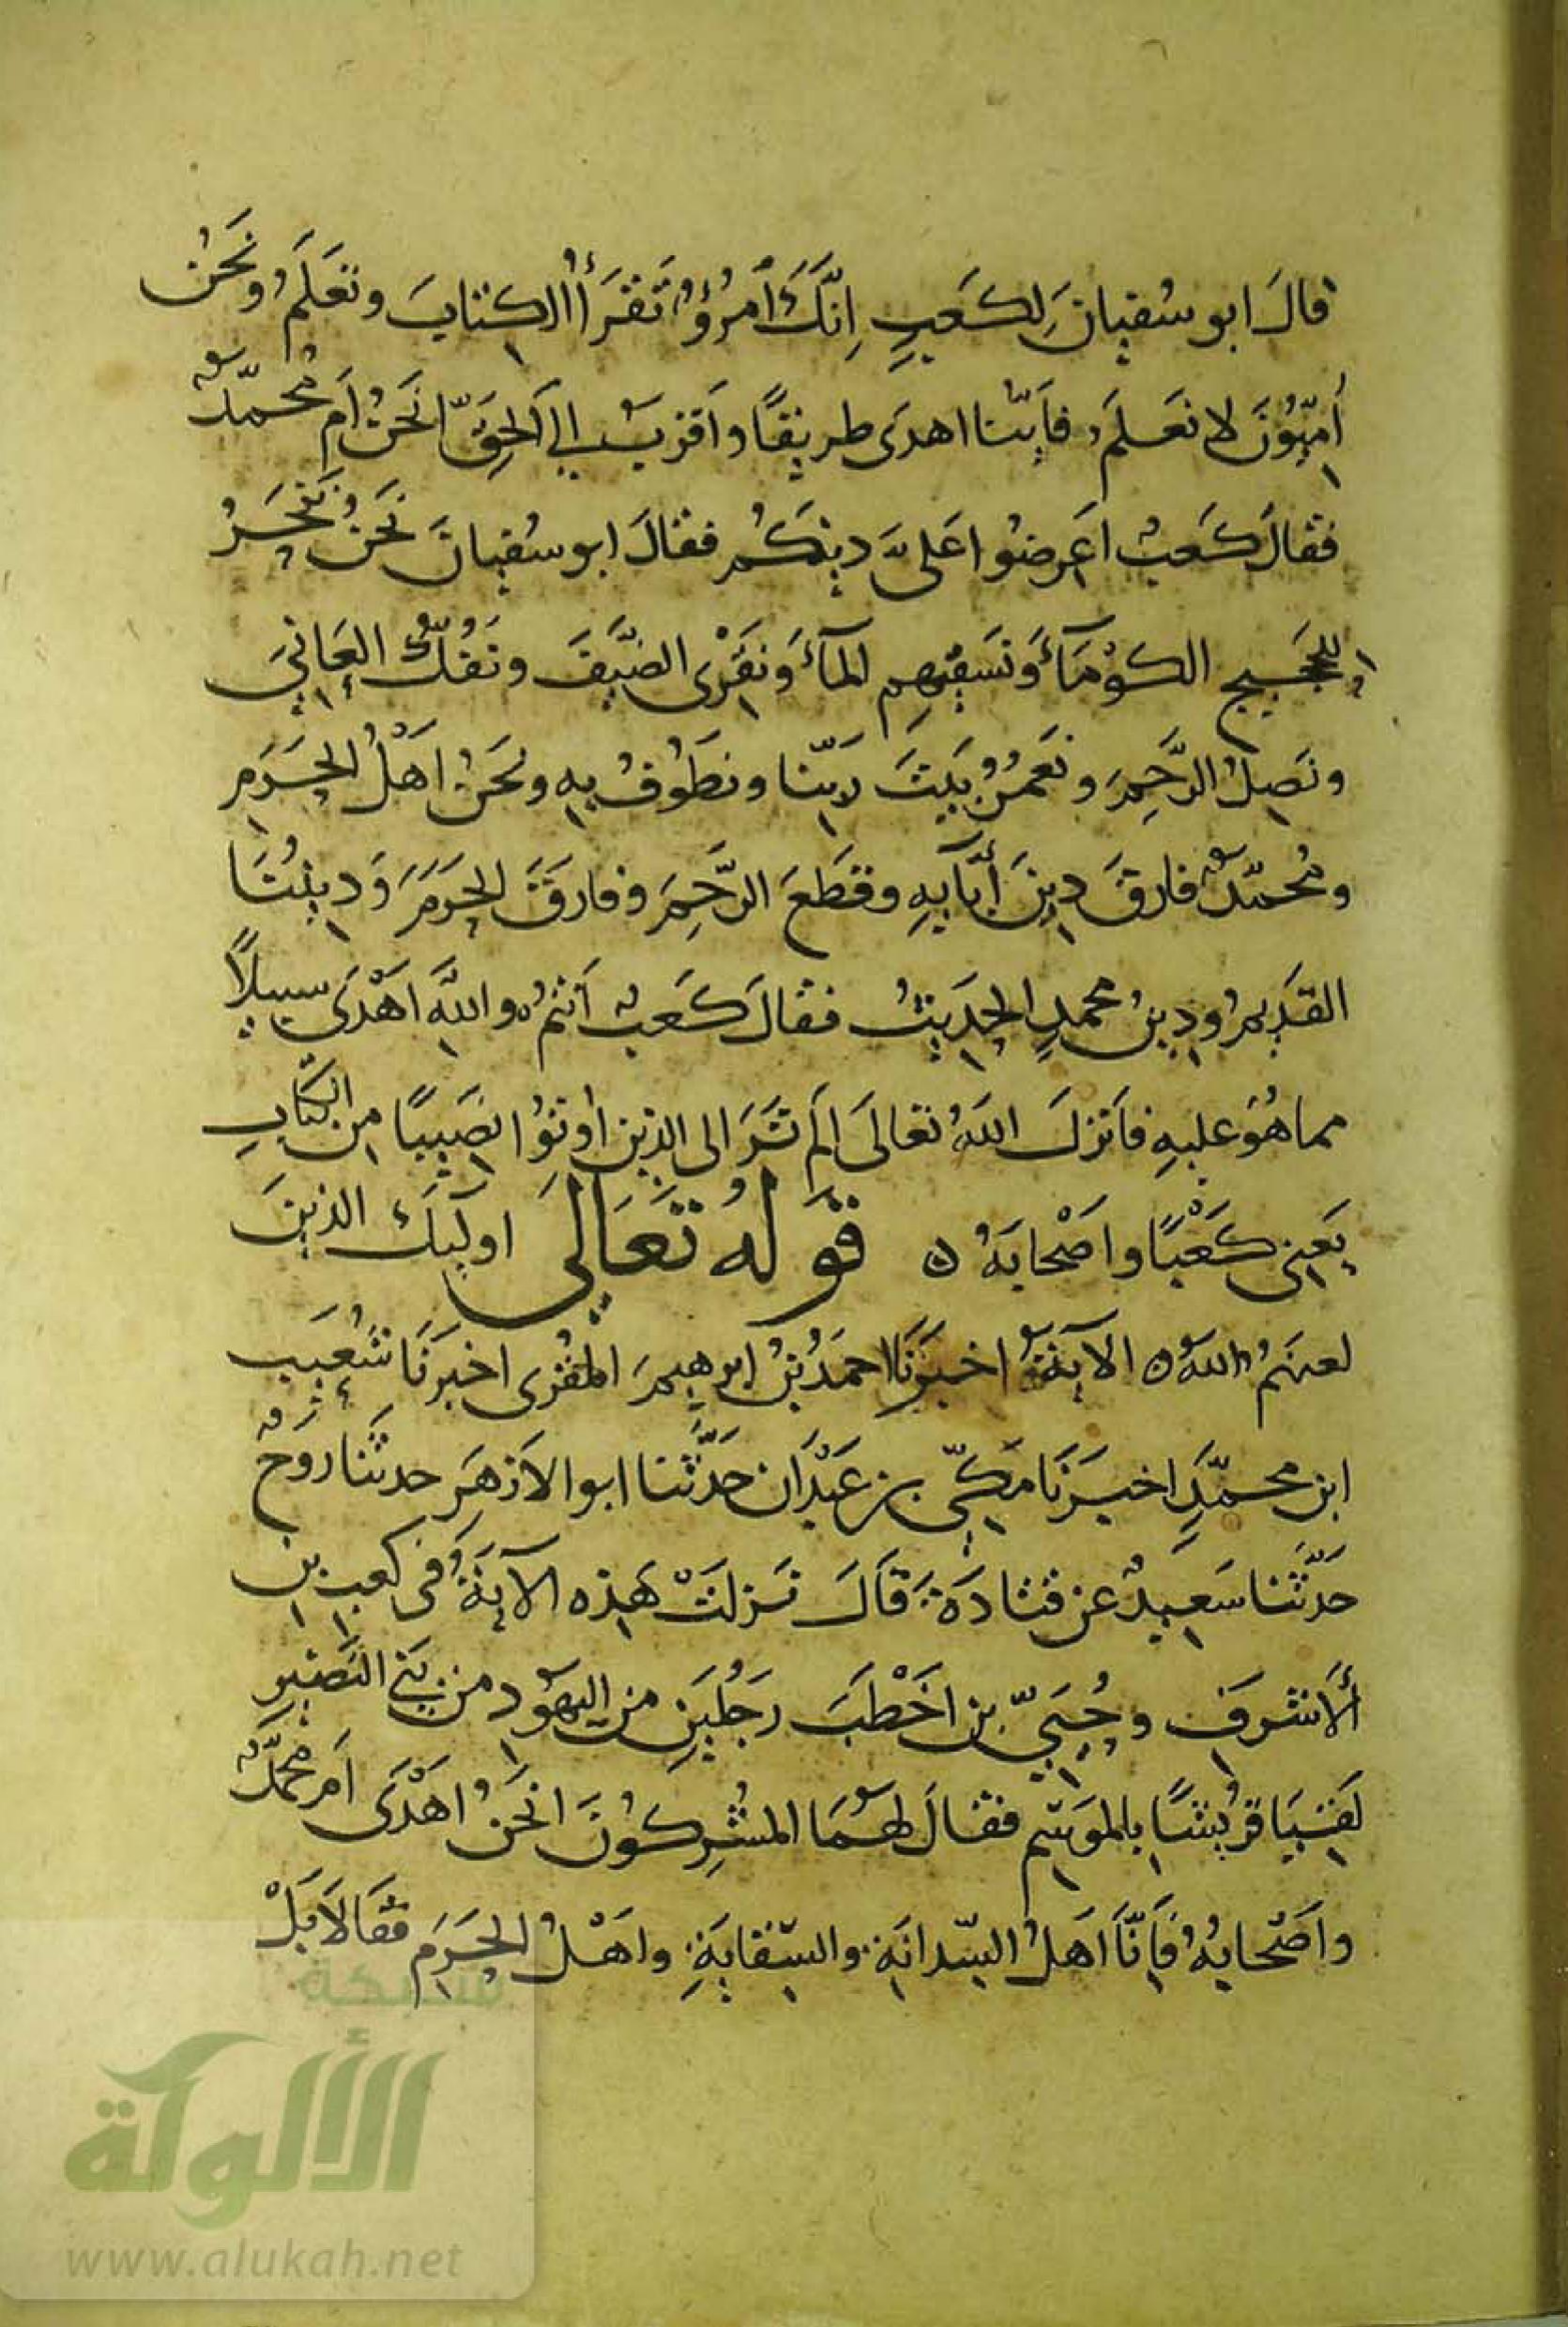 قالَ ابو سُفيانَ لِكَعبٍ اِنَّكَ اُمرُؤٌ تَقرَأُ الكتابَ وتَعلَمُ ونَحنُ
أُمِّيُّونَ لا نَعلَمُ فَأَيُّنا اهدَى طريقًا واَقرَبُ الى الحَقِّ انَحنُ اَم مُحمّدٌ
فقالَ كَعبٌ اعرِضُوا عَلىَّ دينَكُم فقالَ ابو سُفيانَ نَحنُ نَنحَرُ
للحَجيج الكَوْمَآءَ ونَسقِيهِم المآءَ ونَقرْى الضَّيفَ ونَفُكُّ العَانِيَ
ونَصِلُ الرَّحِمَ ونَعمُرُ بَيتَ رَبّنا ونطَوُفُ بِهِ ونحَنُ اَهْلُ الحَرَمِ
ومُحمّدٌ فارقَ دِينَ أبَآيِهِ وقَطَعَ الرَّحِمَ وفارَقَ الحَرَمَ وَدِينُنَا
القَدِيمُ ودِينُ محمدٍ الحَدِيثُ فقالَ كَعبٌ اَنتُم واللَّهِ اَهْدَى سبيلًا
مما هُوَ عليهِ فاَنزلَ اللَّهُ تعَالَى اَلَم تَرَ الى الذين اُوتوُا نصَيبًا مِن الكتَابِ
يَعنِى كَعْبًا واَصْحابَهُ ه قَولُهُ تَعَالىَ اوليِكَ الذينَ
لعنَهُم اللهُ ه الآيةُ اخبرَنَا احمَدُ بنُ ابرهيمَ المقُرى اخبَرنَا شُعَيبُ
ابن محمّدٍ اخبرَنَا مَكّيّ بن عَبْدَان حَدَّثنا ابو الاَزهَرِ حدثنا رَوحٌ
حَدَّثنا سَعِيدٌ عن قتادَةَ قالَ نَزلَتْ هذِه الآيَةُ في كعبِ بنِ
الأَشرَفِ وحُيَيّ بن اَخْطَبَ رَجُلَينِ من اليَهوُدِ من بَني النَّضيرِ
لَقِيَا قرُيشًا بالموَسِم فقالَ لهمَا المشُرِكُونَ انَحنُ اَهْدَى اَم محمّدٌ
واَصْحابهُ فاِنَّا اَهلُ السِّدانَةِ والسِّقايَةِ واهَلُ الحَرَمِ فقَالاَ بَلْ
شبكة
الألوكة
www.alukah.net